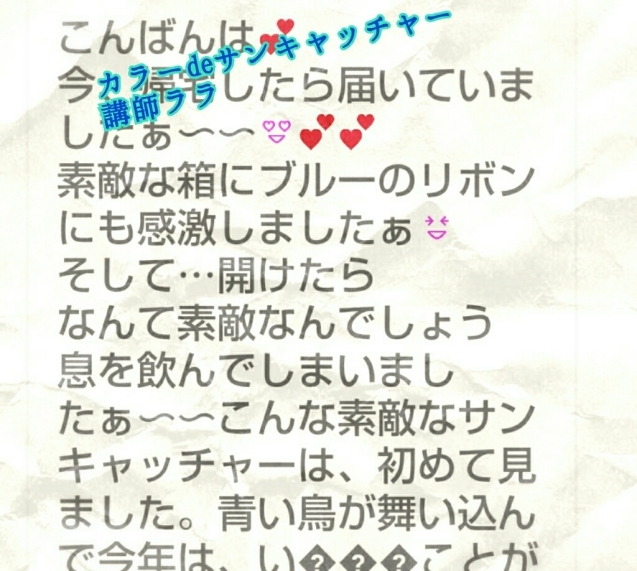 こんばんは💕
カラーdeサンキャッチャー
講師ララ
今、帰宅したら届いていま
したぁ〜〜😍💕💕
素敵な箱にブルーのリボン
にも感激しましたぁ😆
そして…開けたら
なんて素敵なんでしょう
息を飲んでしまいまし
たぁ〜〜こんな素敵なサン
キャッチャーは、初めて見
ました。青い鳥が舞い込ん
で今年は、い���ことが